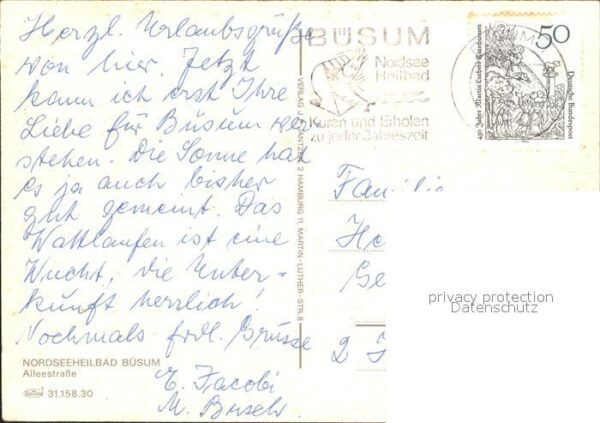 Herzl. Urlaubsgrüße
von hier. Jetzt
kann ich erst Ihre
Liebe für Büsum ver
stehen. Die Sonne hat
es ja auch bisher
gut gemeint. Das
Wattlaufen ist eine
Wucht, die Unter-
kunft herrlich!
Nochmals frdl. Grüsse
E. Jacobi
M. Busch
NORDSEEHEILBAD BÜSUM
Alleestraße
31.158.30
VERLAG 2 HAMBURG 11, MARTIN-LUTHER-STR. 6
BÜSUM
Nordsee
Heilbad
Kuren und Erholen
zu jeder Jahreszeit
50
Deutsche Bundespost
450 Jahre Martin Luthers
Famili
Ha
Ge
2
privacy protection
Datenschutz